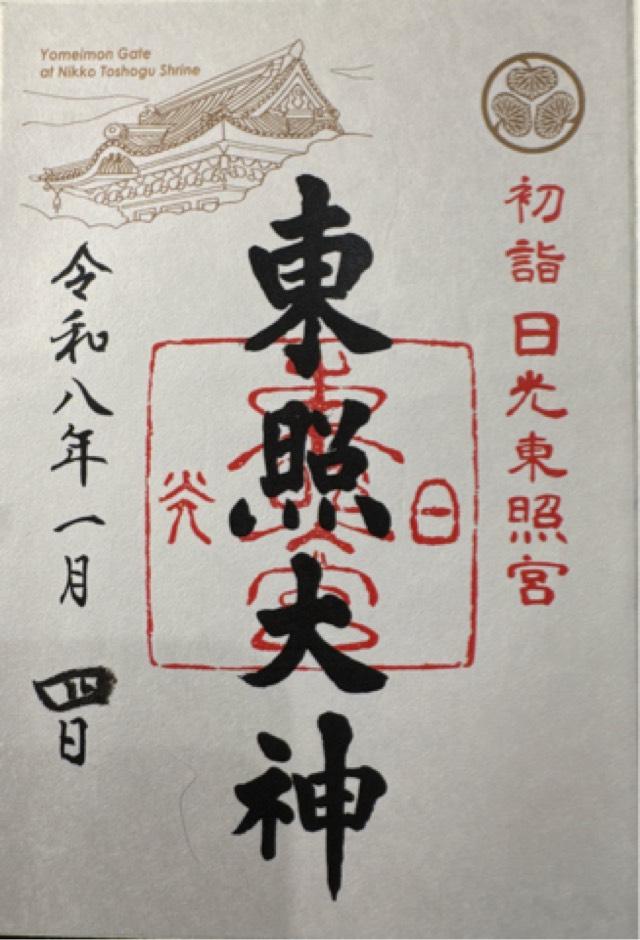 Yomeimon Gate
at Nikko Toshogu Shrine
初詣 日光東照宮
東照大神
令和八年一月四日
日光